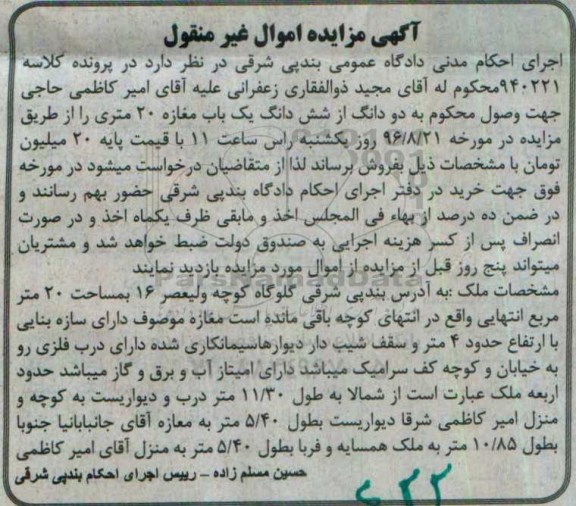 آگهی مزایده اموال غیر منقول
اجرای احکام مدنی دادگاه عمومی بندپی شرقی در نظر دارد در پرونده کلاسه
۹۴۰۲۲۱محکوم له آقای مجید ذوالفقاری زعفرانی علیه آقای امیر کاظمی حاجی
جهت وصول محکوم به دو دانگ از شش دانگ یک باب مغازه ۲۰ متری را از طریق
مزایده در مورخه ۹۶/۸/۲۱ روز یکشنبه راس ساعت ۱۱ با قیمت پایه ۲۰ میلیون
تومان با مشخصات ذیل بفروش برساند لذا از متقاضیان درخواست میشود در مورخه
فوق جهت خرید در دفتر اجرای احکام دادگاه بندپی شرقی حضور بهم رسانند و
در ضمن ده درصد از بهاء فی المجلس اخذ و مابقی ظرف یکماه اخذ و در صورت
انصراف پس از کسر هزینه اجرایی به صندوق دولت ضبط خواهد شد و مشتریان
میتواند پنج روز قبل از مزایده از اموال مورد مزایده بازدید نمایند
مشخصات ملک :به آدرس بندپی شرقی گلوگاه کوچه ولیعصر ۱۶ بمساحت ۲۰ متر
مربع انتهایی واقع در انتهای کوچه باقی مانده است مغازه موصوف دارای سازه بنایی
با ارتفاع حدود ۴ متر و سقف شیب دار دیوارهاسیمانکاری شده دارای درب فلزی رو
به خیابان و کوچه کف سرامیک میباشد دارای امتیاز آب و برق و گاز میباشد حدود
اربعه ملک عبارت است از شمالا به طول ۱۱/۳۰ متر درب و دیواریست به کوچه و
منزل امیر کاظمی شرقا دیواریست بطول ۵/۴۰ متر به معازه آقای جانبابانیا جنوبا
بطول ۱۰/۸۵ متر به ملک همسایه و فربا بطول ۵/۴۰ متر به منزل آقای امیر کاظمی
حسین مسلم زاده – رییس اجرای احکام بندپی شرقی
ParsNamadData